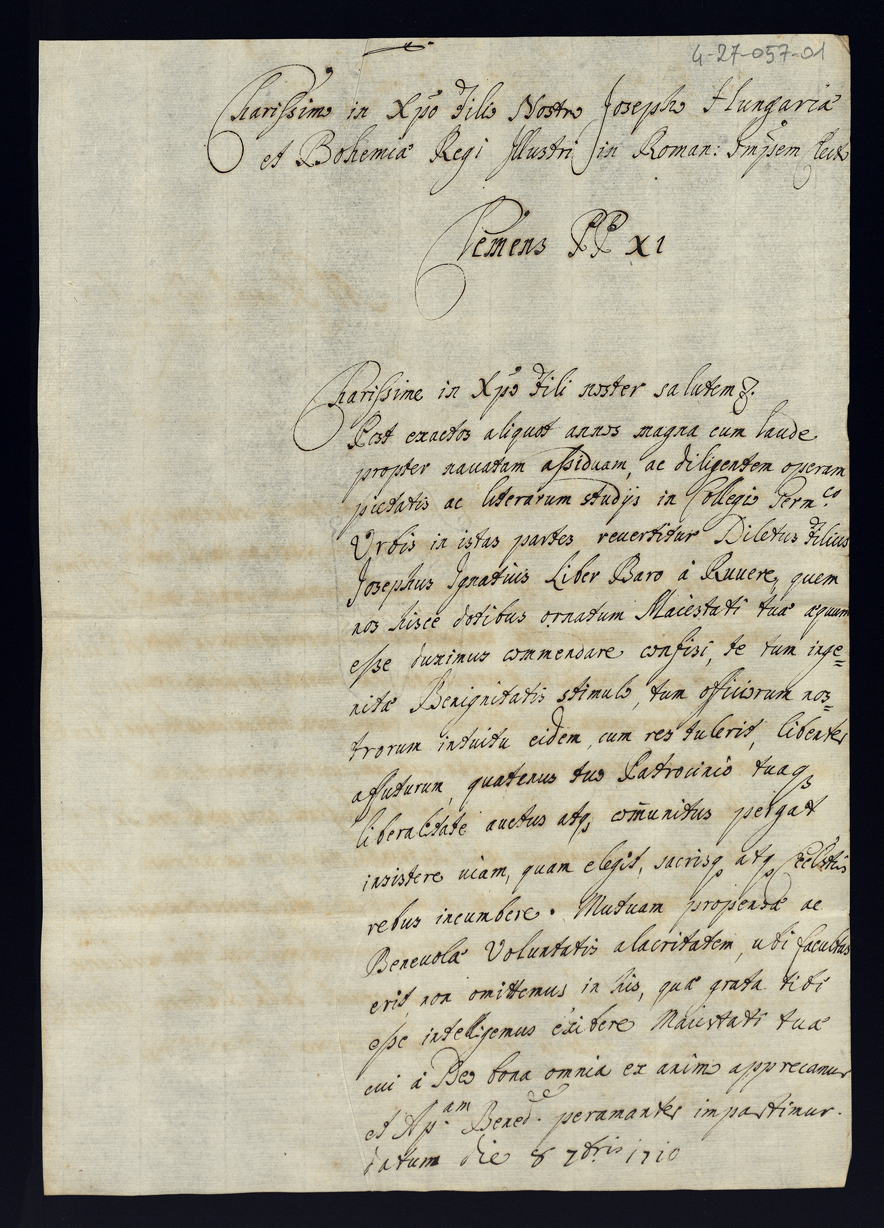 4-27-057-01
Charissimo in Xpõ Filio Nostro Josepho Hungariæ
et Bohemiæ Regi Illustri in Roman: Imp̃em Electo
Clemens PP XI
Charissime in Xpõ Fili noster salutem &.
Post exactos aliquot annos magna cum laude
propter navatam assiduam, ac diligentem operam
pietatis ac literarum studijs in Collegio Germ.co
Urbis in istas partes revertitur Dilectus Filius
Josephus Ignatius Liber Baro à Ruvere, quem
nos hisce dotibus ornatum Maiestati tuæ æquum
esse duximus commendare confisi, te tum inge=
nitæ Benignitatis stimulo, tum officiorum nos=
trorum intuitu eidem, cum res tulerit, libenter
affuturum, quatenus tuo Patrocinio tuaq
liberalitate auctus atq com̃unitus pergat
insistere viam, quam elegit, sacrisq atq Cœlestis
rebus incumbere. Mutuam propensæ ac
Benevolæ Voluntatis alacritatem, ubi facultas
erit, non omittemus in his, quæ grata tibi
esse intelligemus exibere Maiestati tuæ
cui à Deo bona omnia ex animo apprecamur
et Ap.am Bened. peramanter impartimur.
datum die 8 7bris 1710